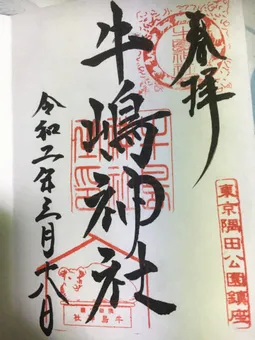 奉拝
牛嶋神社
令和二年三月六日
東京隅田公園鎮座